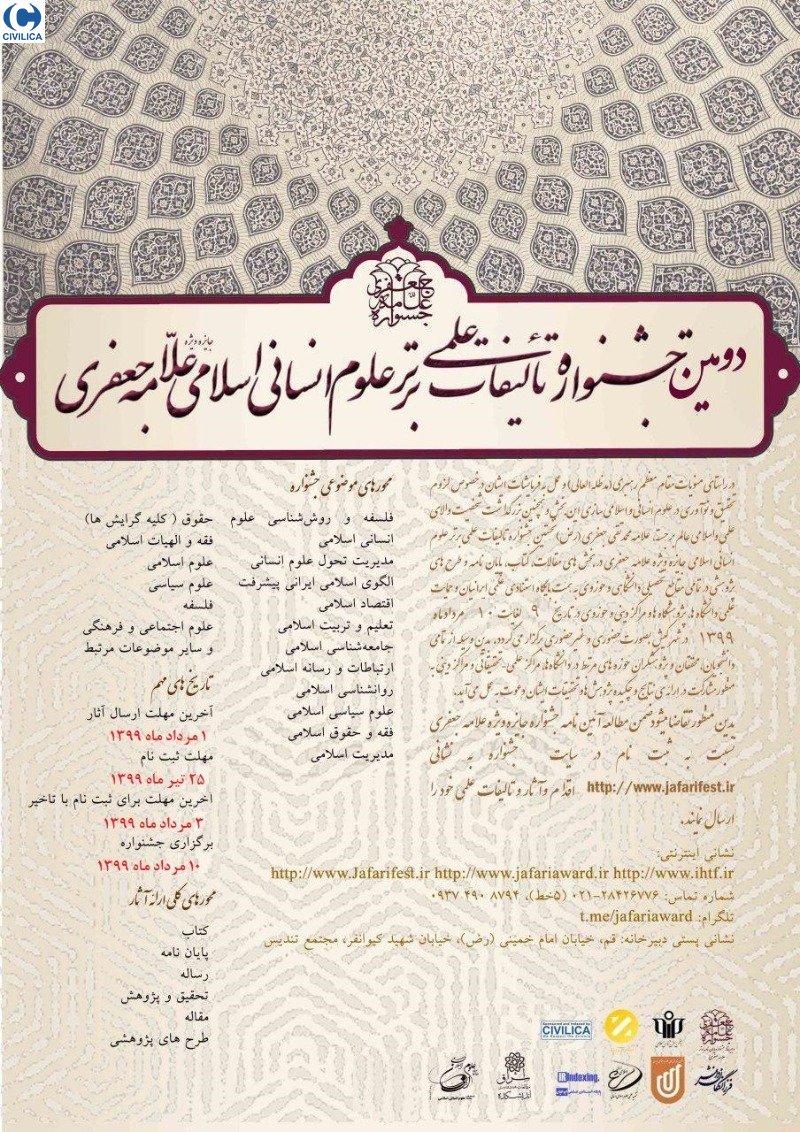 CIVILICA
جشنواره علامه جعفری
دومین جشنواره تألیفات علمی برتر علوم انسانی اسلامی جایزه ویژه علامه جعفری
در راستای منویات مقام معظم رهبری (مدظله العالی) و عمل به فرمایشات ایشان در خصوص لزوم
تحقیق و نوآوری در علوم انسانی و اسلامی سازی این بخش و همچنین بزرگداشت شخصیت والای
علمی و اسلامی عالم برجسته علامه محمد تقی جعفری (رض) دومین جشنواره تالیفات علمی برتر علوم
انسانی اسلامی جایزه ویژه علامه جعفری در بخش های مقالات، کتاب، پایان نامه و طرح های
پژوهشی در تمامی مقاطع تحصیلی دانشگاهی و حوزوی به همت پایگاه استنادی علمی ایرانیان و حمایت
علمی دانشگاه ها، پژوهشگاه ها و مراکز دینی و حوزوی در تاریخ ۹ لغایت ۱۰ مردادماه
۱۳۹۹ در شهر کیش بصورت حضوری و غیر حضوری برگزار می گردد، بدین وسیله از تمامی
دانشجویان، محققان و پژوهشگران حوزه های مرتبط در دانشگاه ها، مراکز علمی-تحقیقاتی و مراکز دینی به
منظور مشارکت در ارائه ی نتایج و چکیده پژوهش ها و تحقیقات ایشان دعوت به عمل می آید.
بدین منظور تقاضا میشود ضمن مطالعه آئین نامه جشنواره جایزه ویژه علامه جعفری
نسبت به ثبت نام در سایت جشنواره به نشانی
http://www.jafarifest.ir اقدام و آثار و تالیفات علمی خود را
ارسال نمایند.
محورهای موضوعی جشنواره
فلسفه و روش‌شناسی علوم
انسانی اسلامی
مدیریت تحول علوم انسانی
الگوی اسلامی ایرانی پیشرفت
اقتصاد اسلامی
تعلیم و تربیت اسلامی
جامعه‌شناسی اسلامی
ارتباطات و رسانه اسلامی
روانشناسی اسلامی
علوم سیاسی اسلامی
فقه و حقوق اسلامی
مدیریت اسلامی
حقوق ( کلیه گرایش ها)
فقه و الهیات اسلامی
علوم اسلامی
علوم سیاسی
فلسفه
علوم اجتماعی و فرهنگی
و سایر موضوعات مرتبط
تاریخ های مهم
آخرین مهلت ارسال آثار
۱ مرداد ماه ۱۳۹۹
مهلت ثبت نام
۲۵ تیر ماه ۱۳۹۹
آخرین مهلت برای ثبت نام با تاخیر
۳ مرداد ماه ۱۳۹۹
برگزاری جشنواره
۱۰ مرداد ماه ۱۳۹۹
محورهای کلی ارائه آثار
کتاب
پایان نامه
رساله
تحقیق و پژوهش
مقاله
طرح های پژوهشی
نشانی اینترنتی:
http://www.Jafarifest.ir http://www.jafariaward.ir http://www.ihtf.ir
شماره تماس: ۲۸۴۲۶۷۷۶-۰۲۱ (۵خط)، ۸۷۹۴ ۴۹۰ ۰۹۳۷
تلگرام: t.me/jafariaward
نشانی پستی دبیرخانه: قم، خیابان امام خمینی (رض)، خیابان شهید کیوانفر، مجتمع تندیس
CIVILICA
Indexing.